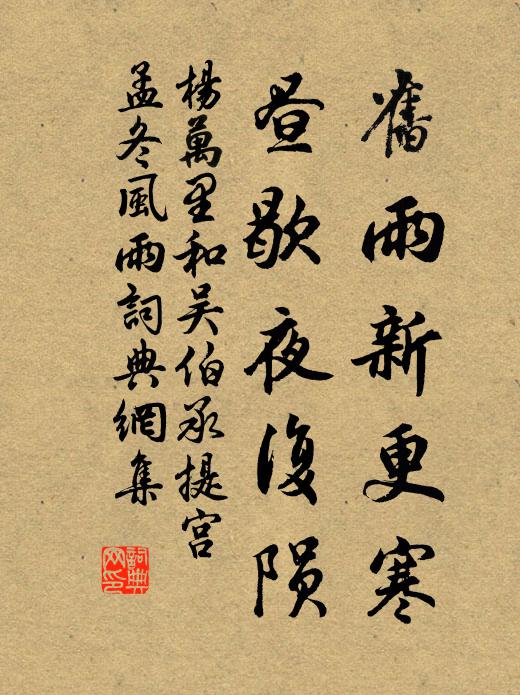 舊雨新更寒
昼歇夜復陨
楊萬里和吴伯承提宫
孟冬風雨詞典網集
詞典网印